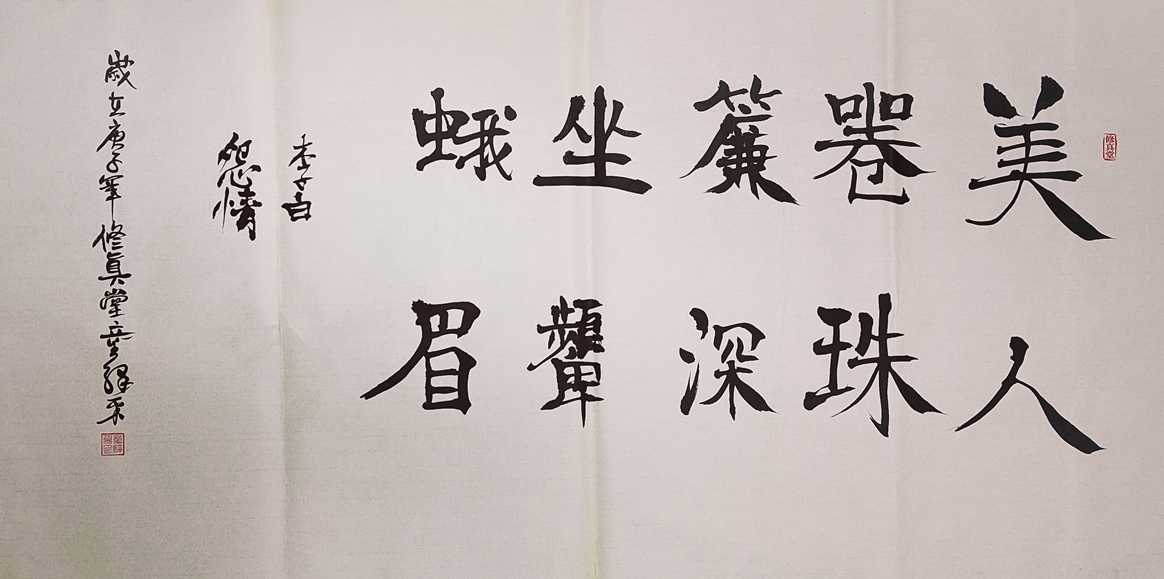 修真堂
美人
卷珠
簾深
坐顰
蛾眉
李太白
怨情
歲在庚子年修真堂